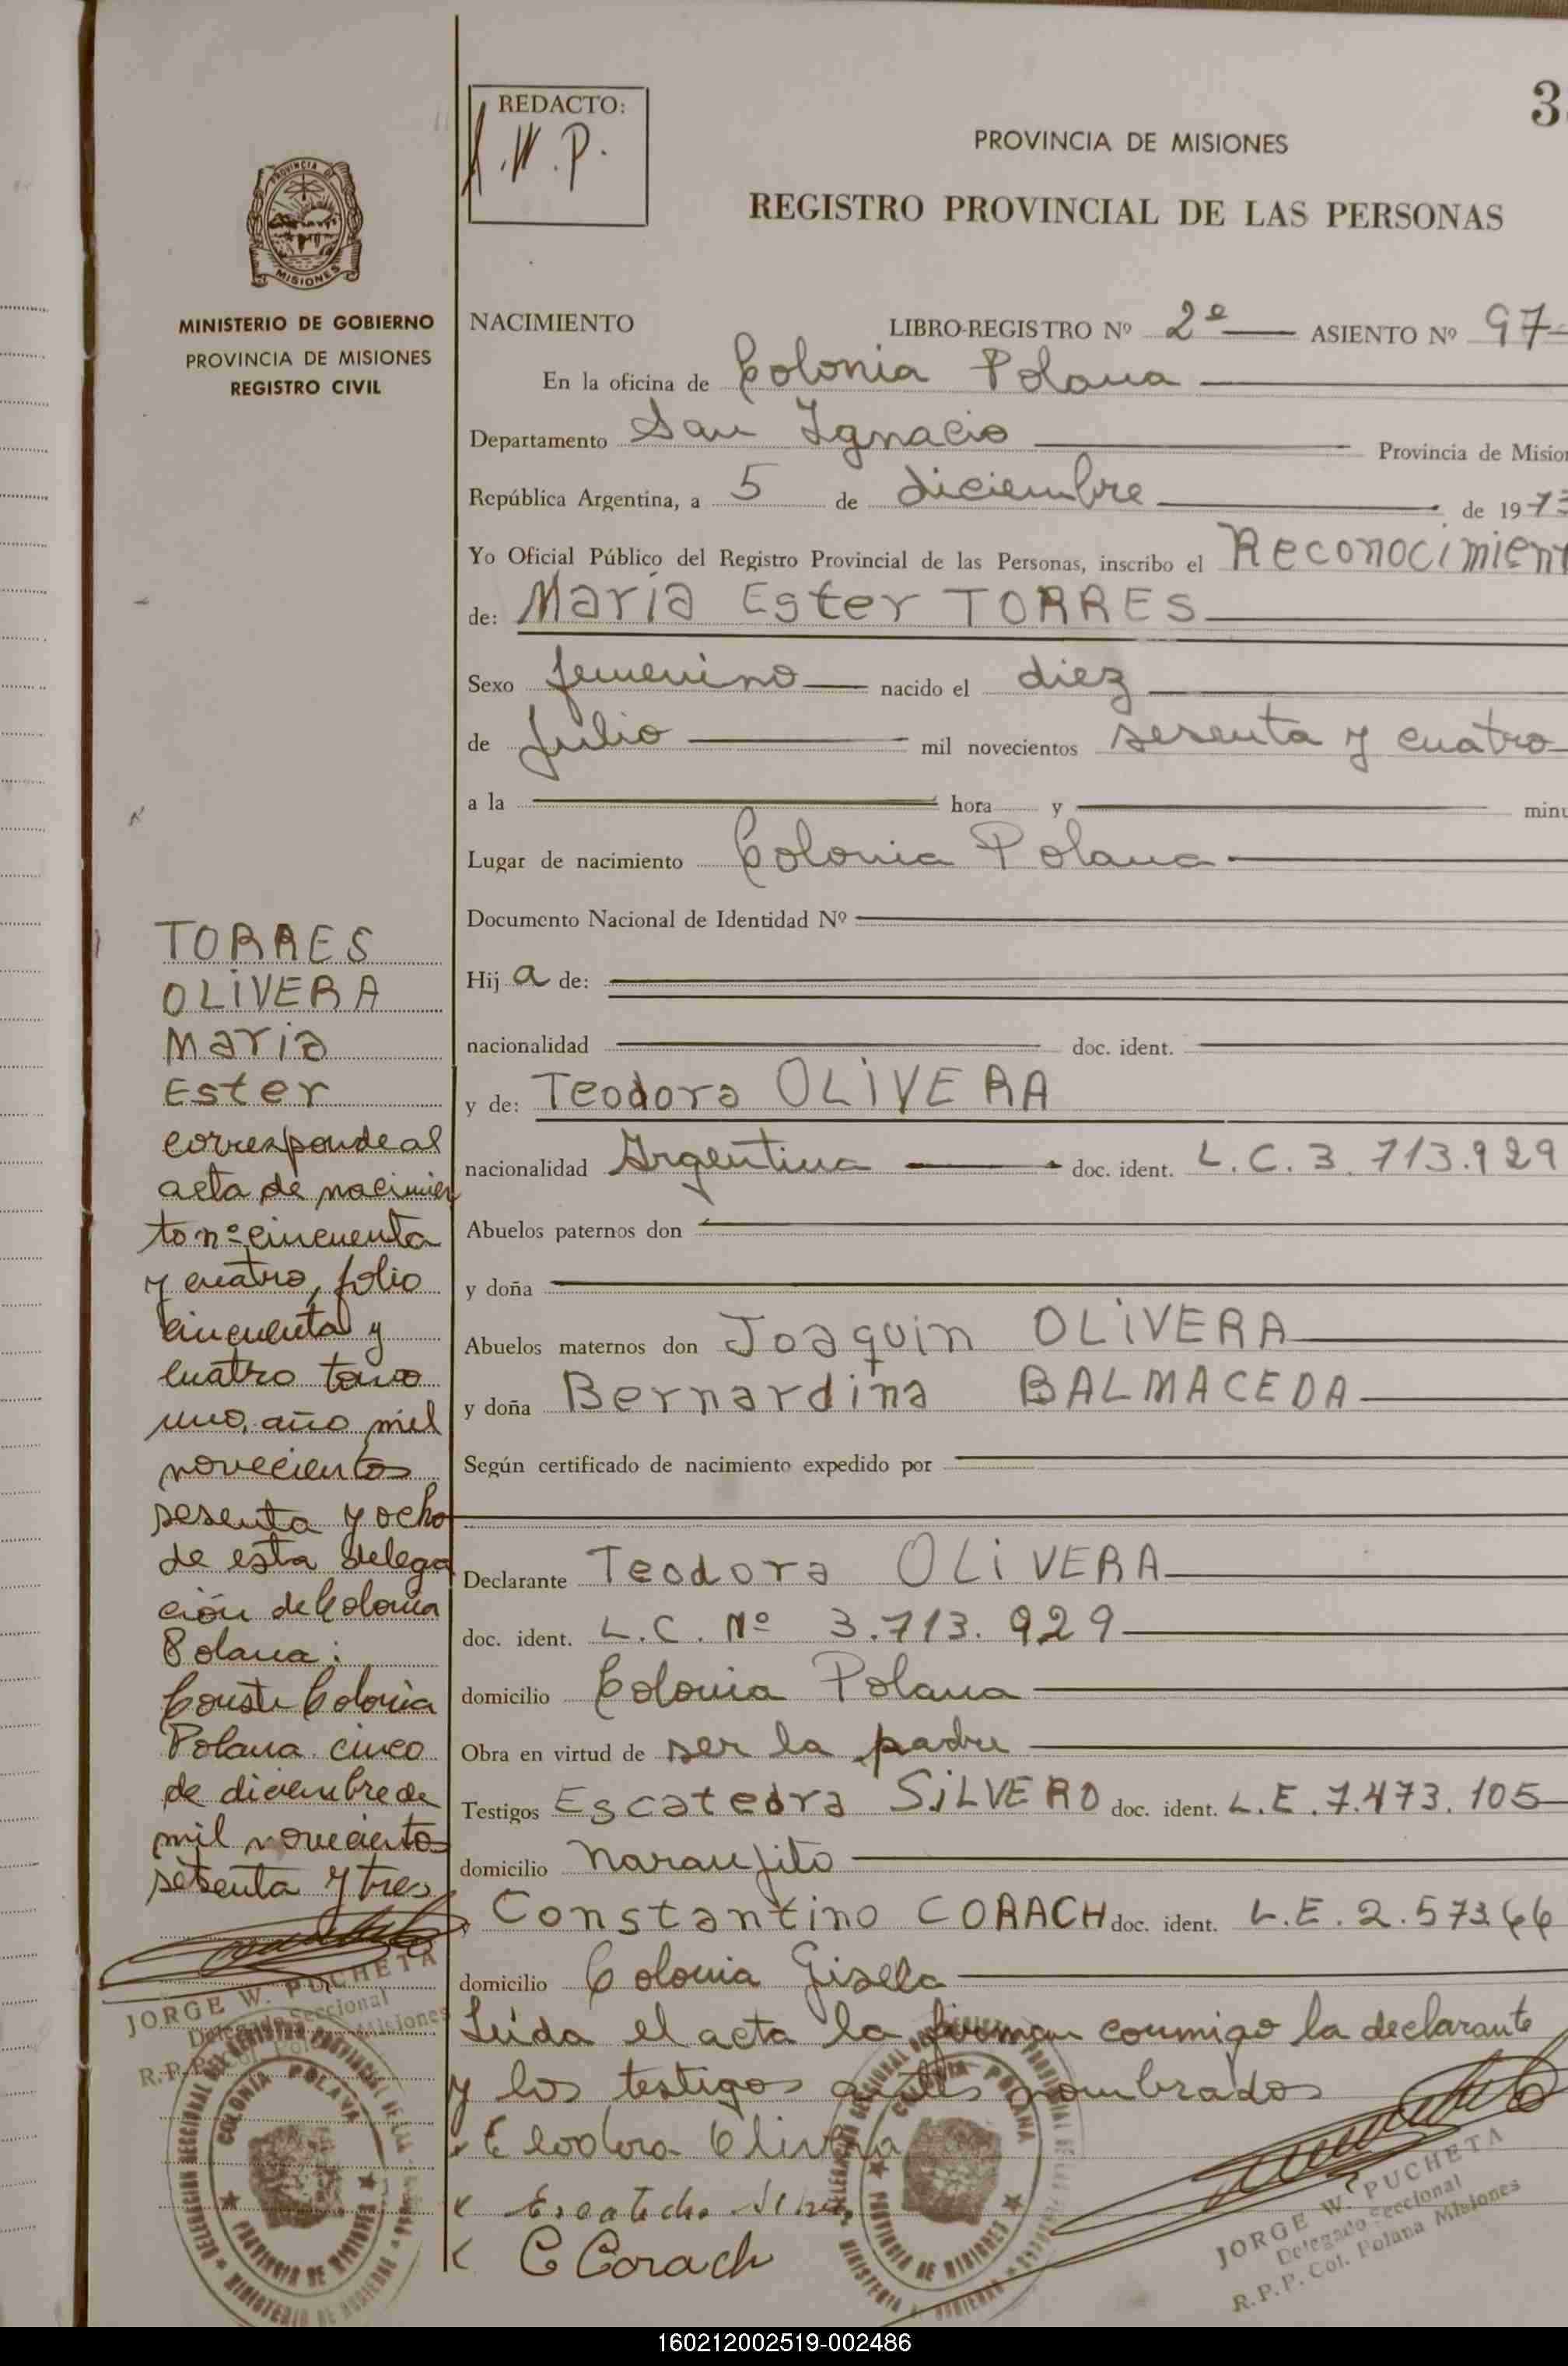 REDACTO:
A.W.P.
3
PROVINCIA DE MISIONES
REGISTRO PROVINCIAL DE LAS PERSONAS
PROVINCIA DE
MISIONES
MINISTERIO DE GOBIERNO
PROVINCIA DE MISIONES
REGISTRO CIVIL
NACIMIENTO LIBRO-REGISTRO Nº 2º ASIENTO Nº 97
En la oficina de Colonia Polana
Departamento San Ignacio Provincia de Mision
República Argentina, a 5 de diciembre de 1973
Yo Oficial Público del Registro Provincial de las Personas, inscribo el Reconocimient
de: María Ester TORRES
Sexo femenino nacido el diez
de Julio mil novecientos sesenta y cuatro
a la hora y minu
Lugar de nacimiento Colonia Polana
Documento Nacional de Identidad Nº
Hij a de:
nacionalidad doc. ident.
y de: Teodora OLIVERA
nacionalidad Argentina doc. ident. L.C. 3.713.929
Abuelos paternos don
y doña
Abuelos maternos don Joaquin OLIVERA
y doña Bernardina BALMACEDA
Según certificado de nacimiento expedido por
Declarante Teodora OLIVERA
doc. ident. L.C. Nº 3.713.929
domicilio Colonia Polana
Obra en virtud de ser la padre
Testigos Escatedra SILVERO doc. ident. L.E. 7.473.105
domicilio Naranjito
Constantino CORACH doc. ident. L.E. 2.573.66
domicilio Colonia Gisela
Leida el acta la firman conmigo la declarante
y los testigos antes nombrados
Teodora Olivera
C Corach
TORRES
OLIVERA
Maria
Ester
corresponde al
acta de nacimien
to nº cincuenta
y cuatro, folio
cincuenta y
cuatro tomo
uno, año mil
novecientos
sesenta y ocho
de esta delega
ción de Colonia
Polana:
Conste Colonia
Polana cinco
de diciembre de
mil novecientos
setenta y tres
JORGE W. PUCHETA
Delegado Seccional
R.P.P. Col. Polana Misiones
COLONIA POLANA
PROVINCIA DE MISIONES
COLONIA POLANA
PROVINCIA DE MISIONES
JORGE W. PUCHETA
Delegado Seccional
R.P.P. Col. Polana Misiones
160212002519-002486